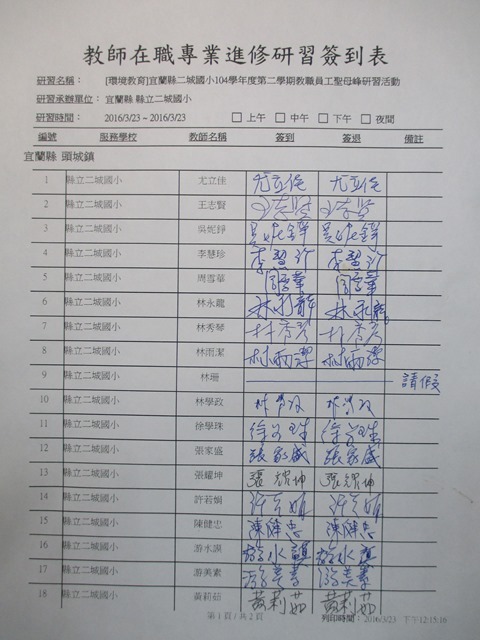 教師在職專業進修研習簽到表
研習名稱： [環境教育]宜蘭縣二城國小104學年度第二學期教職員工聖母峰研習活動
研習承辦單位： 宜蘭縣 縣立二城國小
研習時間： 2016/3/23 ~ 2016/3/23 □ 上午 □ 中午 □ 下午 □ 夜間
編號 服務學校 教師名稱 簽到 簽退 備註
宜蘭縣 頭城鎮
1 縣立二城國小 尤立佳 尤立佳 尤立佳
2 縣立二城國小 王志賢 王志賢 王志賢
3 縣立二城國小 吳妮錚 吳妮錚 吳妮錚
4 縣立二城國小 李慧珍 李慧珍 李慧珍
5 縣立二城國小 周雪華 周雪華 周雪華
6 縣立二城國小 林永龍 林永龍 林永龍
7 縣立二城國小 林秀琴 林秀琴 林秀琴
8 縣立二城國小 林雨潔 林雨潔 林雨潔
9 縣立二城國小 林珊 請假
10 縣立二城國小 林學政 林學政 林學政
11 縣立二城國小 徐學珠 徐學珠 徐學珠
12 縣立二城國小 張家盛 張家盛 張家盛
13 縣立二城國小 張耀坤 張耀坤 張耀坤
14 縣立二城國小 許若娟 許若娟 許若娟
15 縣立二城國小 陳健忠 陳健忠 陳健忠
16 縣立二城國小 游水讃 游水
17 縣立二城國小 游美素 游美素 游美素
18 縣立二城國小 黃莉茹 黃莉茹 黃莉茹
第 1 頁 / 共 2 頁 列印時間： 2016/3/23 下午12:15:16